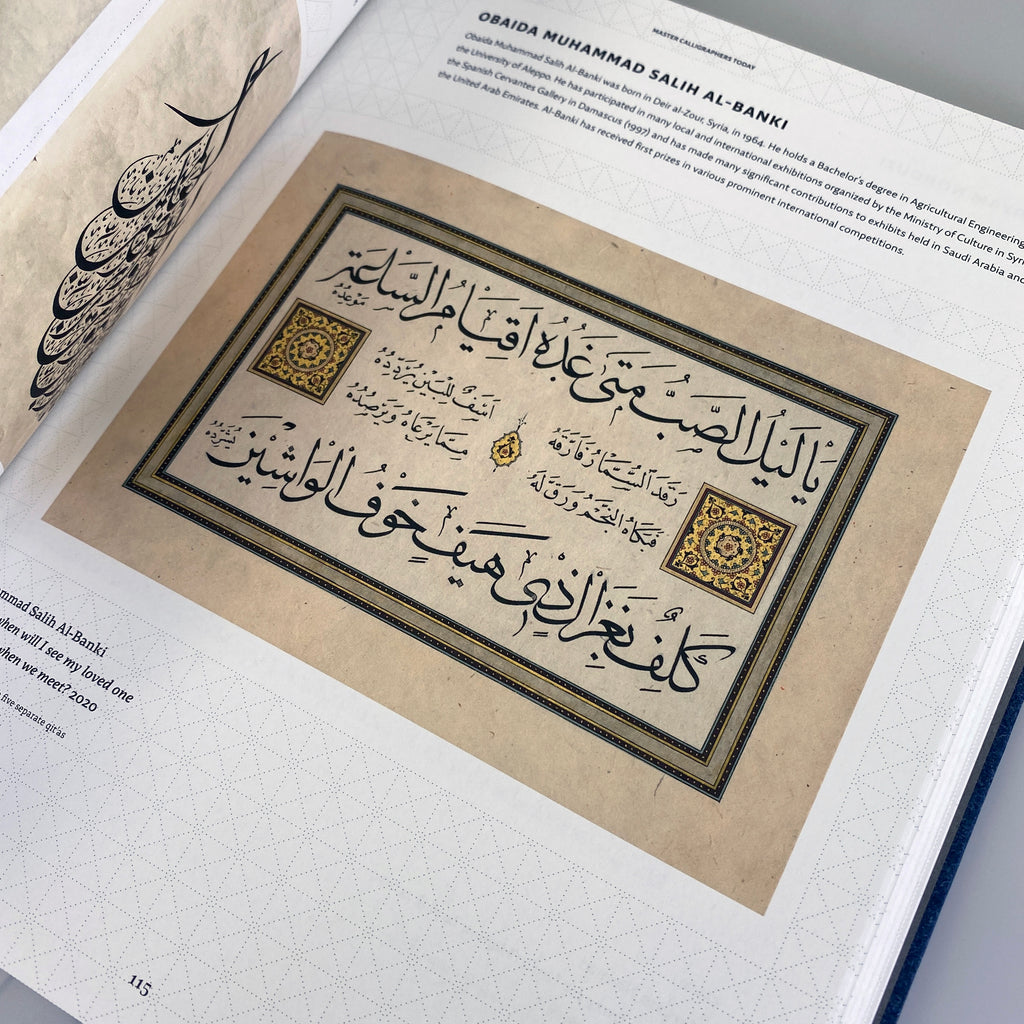 MASTER CALLIGRAPHERS TODAY
OBAIDA MUHAMMAD SALIH AL-BANKI
Obaida Muhammad Salih Al-Banki was born in Deir al-Zour, Syria, in 1964. He holds a Bachelor's degree in Agricultural Engineering
the University of Aleppo. He has participated in many local and international exhibitions organized by the Ministry of Culture in Syri
the Spanish Cervantes Gallery in Damascus (1997) and has made many significant contributions to exhibits held in Saudi Arabia and
the United Arab Emirates. Al-Banki has received first prizes in various prominent international competitions.
يا ليل الصب متى غده اقيام الساعة موعده
رقد السمار فارقه اسف للبين يردده
فبكاه النجم ورق له مما يرعاه ويرصده
كلف بغزال ذي هيف خوف الواشين يشرده
mmad Salih Al-Banki
when will I see my loved one
when we meet? 2020
five separate qit'as
115